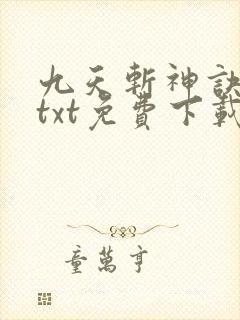 九天斬神訣
txt免費下載
童萬亨